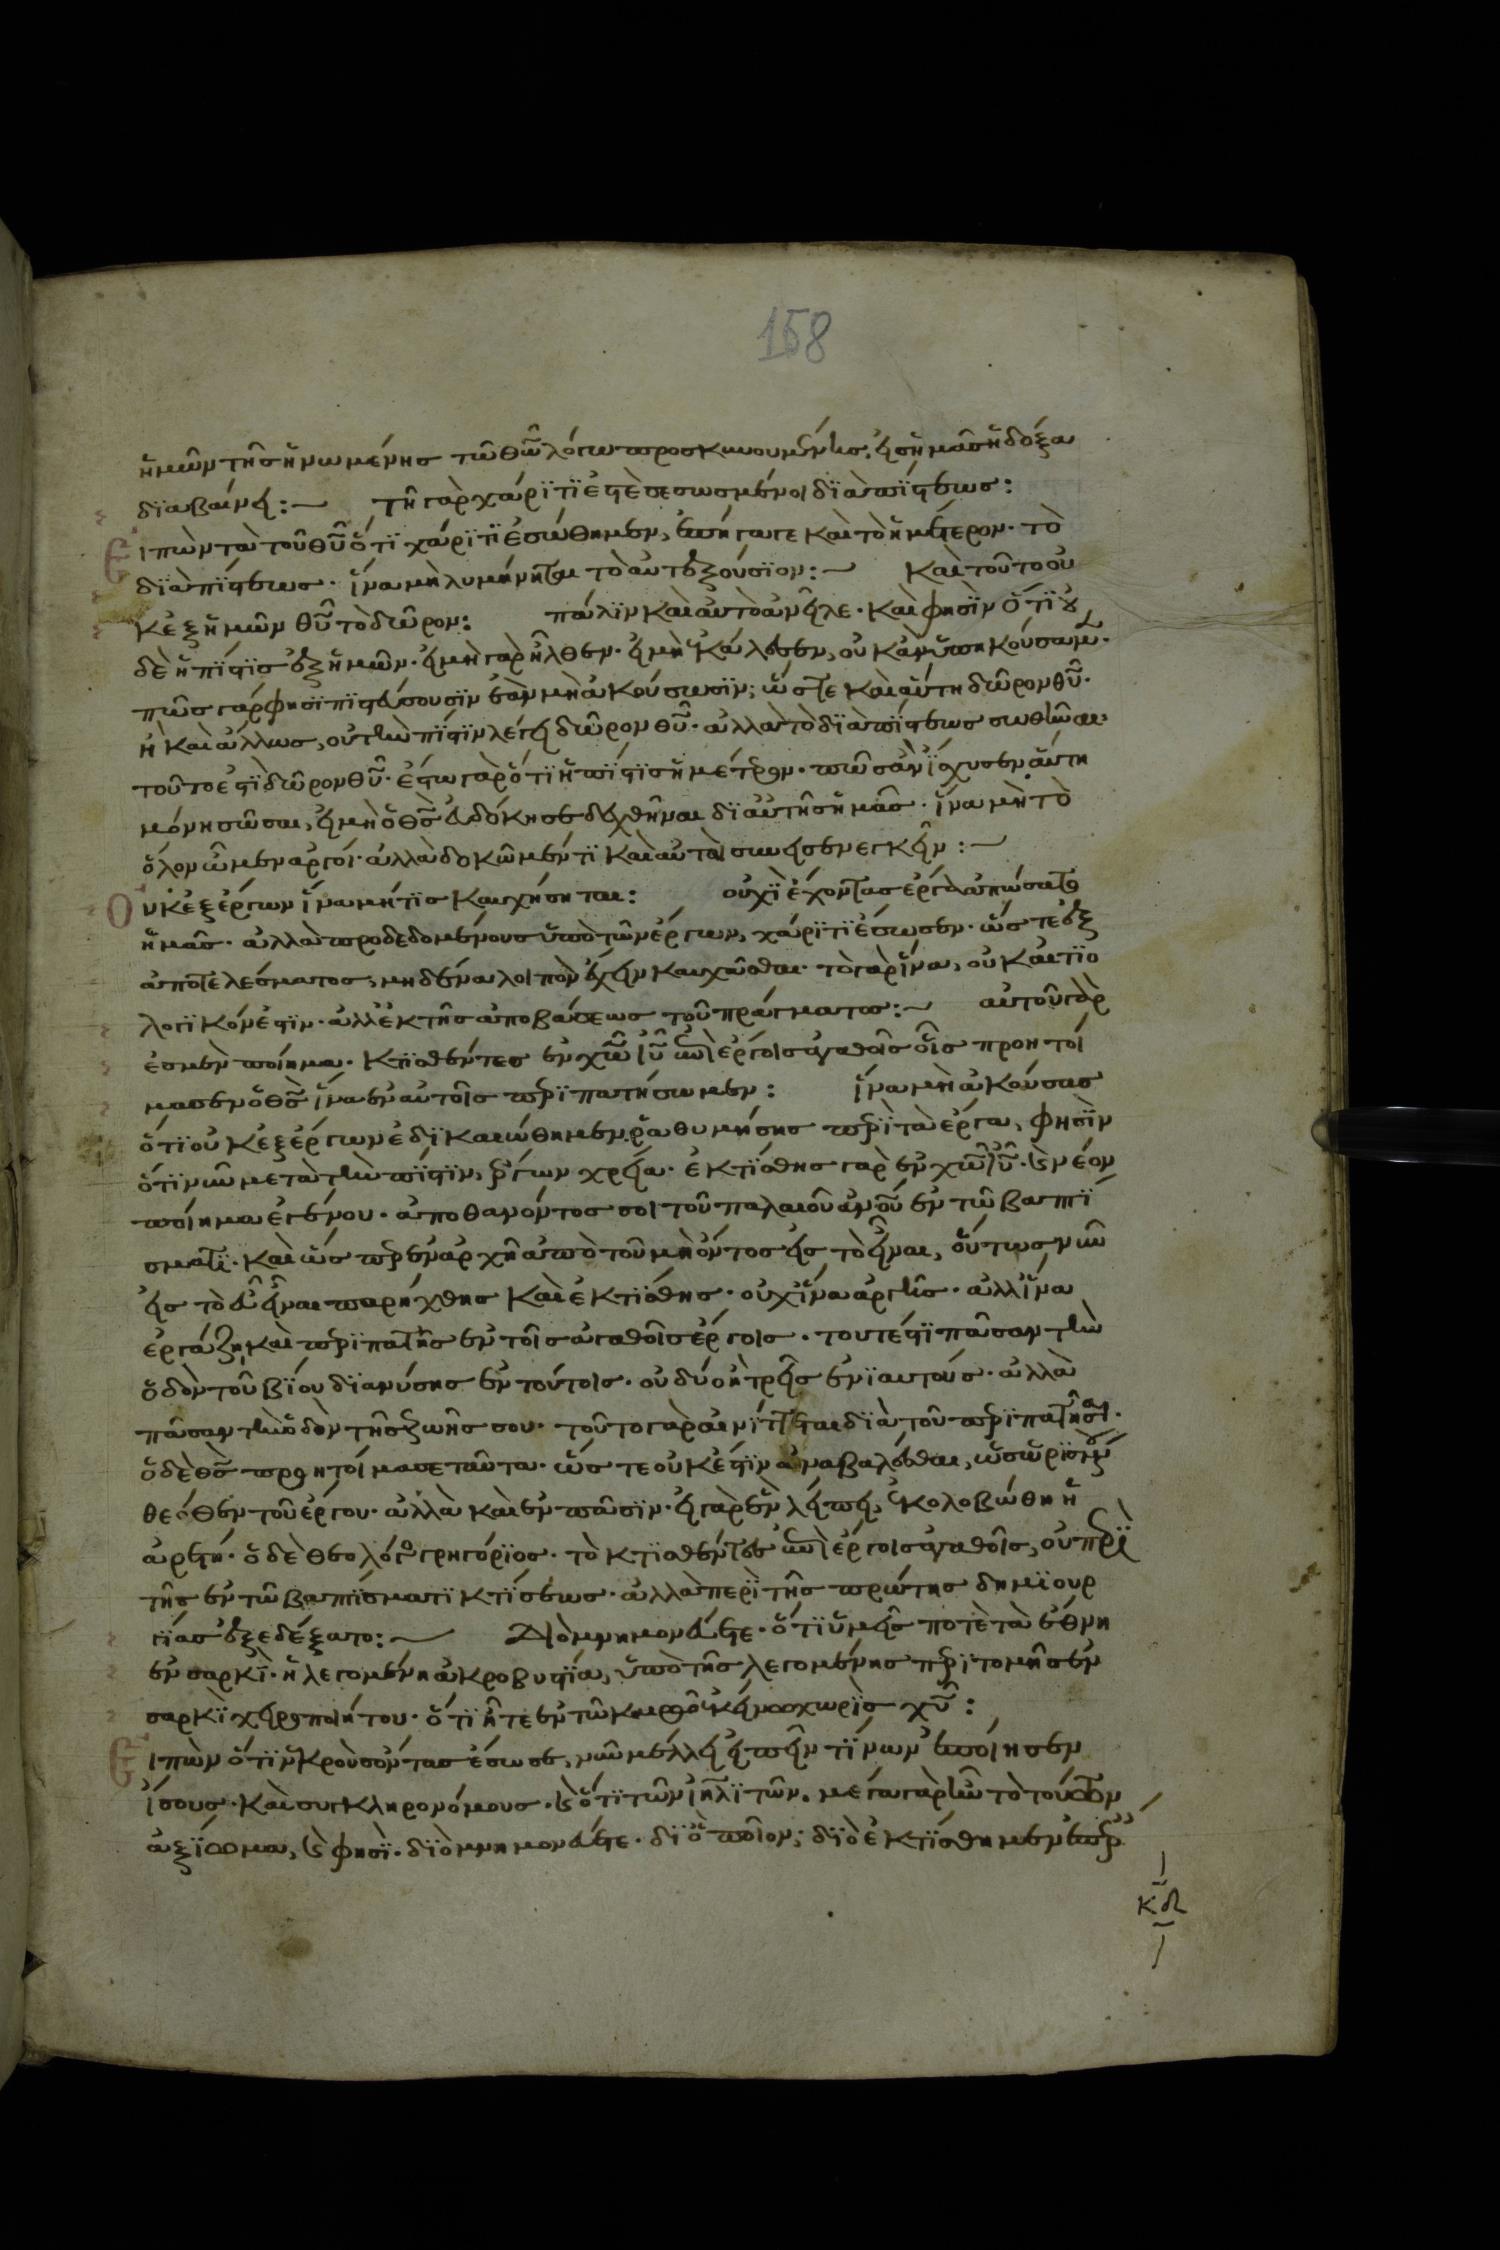 158
ἡμῶν τῆς ἡνωμένης τῷ θω λόγω προσκυνουμένης, εἰς ἡμᾶς ἡ δόξα
διαβαίνει:— τῇ γὰρ χάριτί ἐστὲ σεσωσμένοι διὰ πίστεως:
Εἰπὼν τὰ τοῦ θυ ὅτι χάριτι ἐσώθημεν, ἐπήγαγε καὶ τὸ ἡμέτερον. τὸ
διὰ πίστεως. ἵνα μὴ λυμήνηται τὸ αὐτεξούσιον:— καὶ τοῦτο οὐ
κ ἐξ ἡμῶν θυ τὸ δῶρον: πάλιν καὶ αὐτὸ ἀνεῖλε. καὶ φησὶν ὅτι οὐ
δὲ ἡ πίστις ἐξ ἡμῶν. εἰ μὴ γὰρ ἦλθεν. εἰ μὴ ἐκάλεσεν, οὐκ ἂν ὑπηκούσαμεν.
πῶς γάρ φησι πιστεύσουσιν ἐὰν μὴ ἀκούσωσιν; ὥστε καὶ αὕτη δῶρον θυ.
ἢ καὶ ἄλλως, οὐ τὴν πίστιν λέγει δῶρον θυ. ἀλλὰ τὸ διὰ πίστεως σωθῆναι
τοῦτο ἐστὶ δῶρον θυ. ἔστω γὰρ ὅτι ἡ πίστις ἡμέτερον. πῶς ἂν ἴσχυσεν αὕτη
μόνη σῶσαι, εἰ μὴ ὁ θς εὐδόκησε δεχθῆναι δι αὐτῆς ἡμᾶς. ἵνα μὴ τὸ
ὅλον ὦμεν ἀργοί. ἀλλὰ δοκῶμέν τι καὶ αὐτοὶ συνεισενεγκεῖν:—
Οὐκ ἐξ ἔργων ἵνα μή τις καυχήσηται: οὐχὶ ἔχοντας ἔργα ἀπώσατο
ἡμᾶς. ἀλλὰ προδεδομένους ὑπὸ τῶν ἔργων, χάριτι ἔσωσεν. ὥστε ἐξ
ἀποτελέσματος, μηδένα λοιπὸν ἔχειν καυχᾶσθαι. τὸ γὰρ ἵνα, οὐκ αἰτιο
λογικόν ἐστιν. ἀλλ ἐκ τῆς ἀποβάσεως τοῦ πράγματος:— αὐτοῦ γάρ
ἐσμεν ποίημα. κτισθέντες ἐν χω ιυ ἐπὶ ἔργοις ἀγαθοῖς οἷς προητοί
μασεν ὁ θς ἵνα ἐν αὐτοῖς περιπατήσωμεν: ἵνα μὴ ἀκούσας
ὅτι οὐκ ἐξ ἔργων ἐδικαιώθημεν ῥαθυμήσης περὶ τὰ ἔργα, φησὶν
ὅτι νῦν μετὰ τὴν πίστιν, ἔργων χρεία. ἐκτίσθης γὰρ ἐν χω ιυ. καὶ νέον
ποίημα ἐγένου. ἀποθανόντος σοι τοῦ παλαιοῦ ανου ἐν τῷ βαπτί
σματι. καὶ ὥσπερ ἐν ἀρχῇ ἀπὸ τοῦ μὴ ὄντος εἰς τὸ εἶναι, οὕτως νῦν
εἰς τὸ εὖ εἶναι παρήχθης καὶ ἐκτίσθης. οὐχ ἵνα ἀργῇς. ἀλλ ἵνα
ἐργάζῃ, καὶ περιπατῇς ἐν τοῖς ἀγαθοῖς ἔργοις. τουτέστι πᾶσαν τὴν
ὁδὸν τοῦ βίου διανύσης ἐν τούτοις. οὐ δύο ἢ τρεῖς ἐνιαυτούς. ἀλλὰ
πᾶσαν τὴν ὁδὸν τῆς ζωῆς σου. τοῦτο γὰρ αἰνίττεται διὰ τοῦ περιπατῆσαι.
ὁ δὲ θς προητοίμασε ταῦτα. ὥστε οὐκ ἔστιν ἀναβαλέσθαι, ὡς ὡρισμέν
θεόθεν τοῦ ἔργου. ἀλλὰ καὶ ἐν πᾶσιν. εἰ γὰρ ἓν λείπει, ἐκολοβώθη ἡ
ἀρετή. ὁ δὲ θεολόγος γρηγόριος. τὸ κτισθέντες ἐπὶ ἔργοις ἀγαθοῖς, οὐ περὶ
τῆς ἐν τῷ βαπτίσματι κτίσεως. ἀλλὰ περὶ τῆς πρώτης δημιουρ
γίας ἐξεδέξατο:— Διὸ μνημονεύετε. ὅτι ὑμεῖς ποτὲ τὰ ἔθνη
ἐν σαρκὶ. ἡ λεγομένη ἀκροβυστία, ὑπὸ τῆς λεγομένης περιτομῆς ἐν
σαρκὶ χειροποιήτου. ὅτι ἦτε ἐν τῷ καιρῷ ἐκείνω χωρὶς χυ:
Εἰπὼν ὅτι νεκροὺς ὄντας ἔσωσε, νῦν μέλλει εἰπεῖν τίνων ἐποίησεν
ἴσους. καὶ συγκληρονόμους. καὶ ὅτι τῶν ιηλιτῶν. μέγα γὰρ ἦν τὸ τούτων
ἀξίωμα, καὶ φησὶ. διὸ μνημονεύετε. δι ὃ ποῖον; διὸ ἐκτίσθημεν ἐπ ἔργοις
κδ